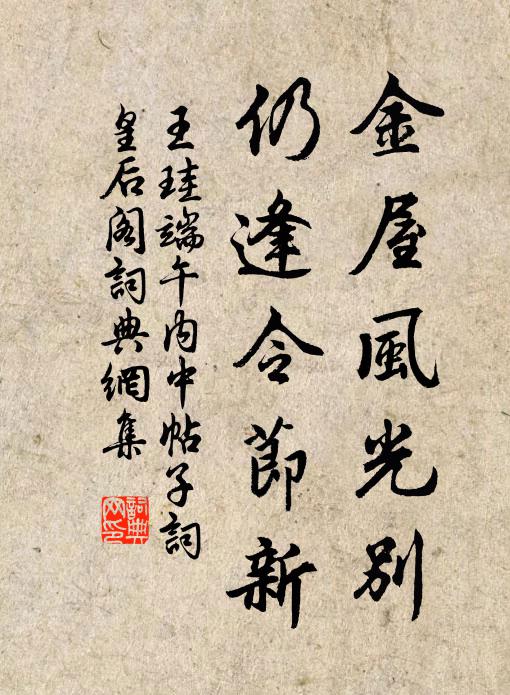 金屋風光別
仍逢令節新
王珪端午内中帖子詞
皇后阁詞典網集
詞典
网印